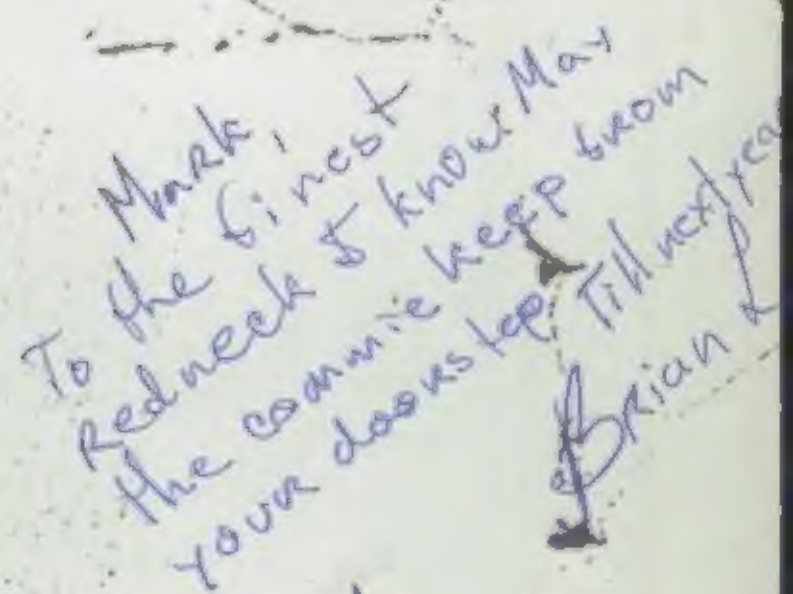 Mark,
To the finest
Redneck I know May
the commie keep from
your doorstep Till next year
Brian